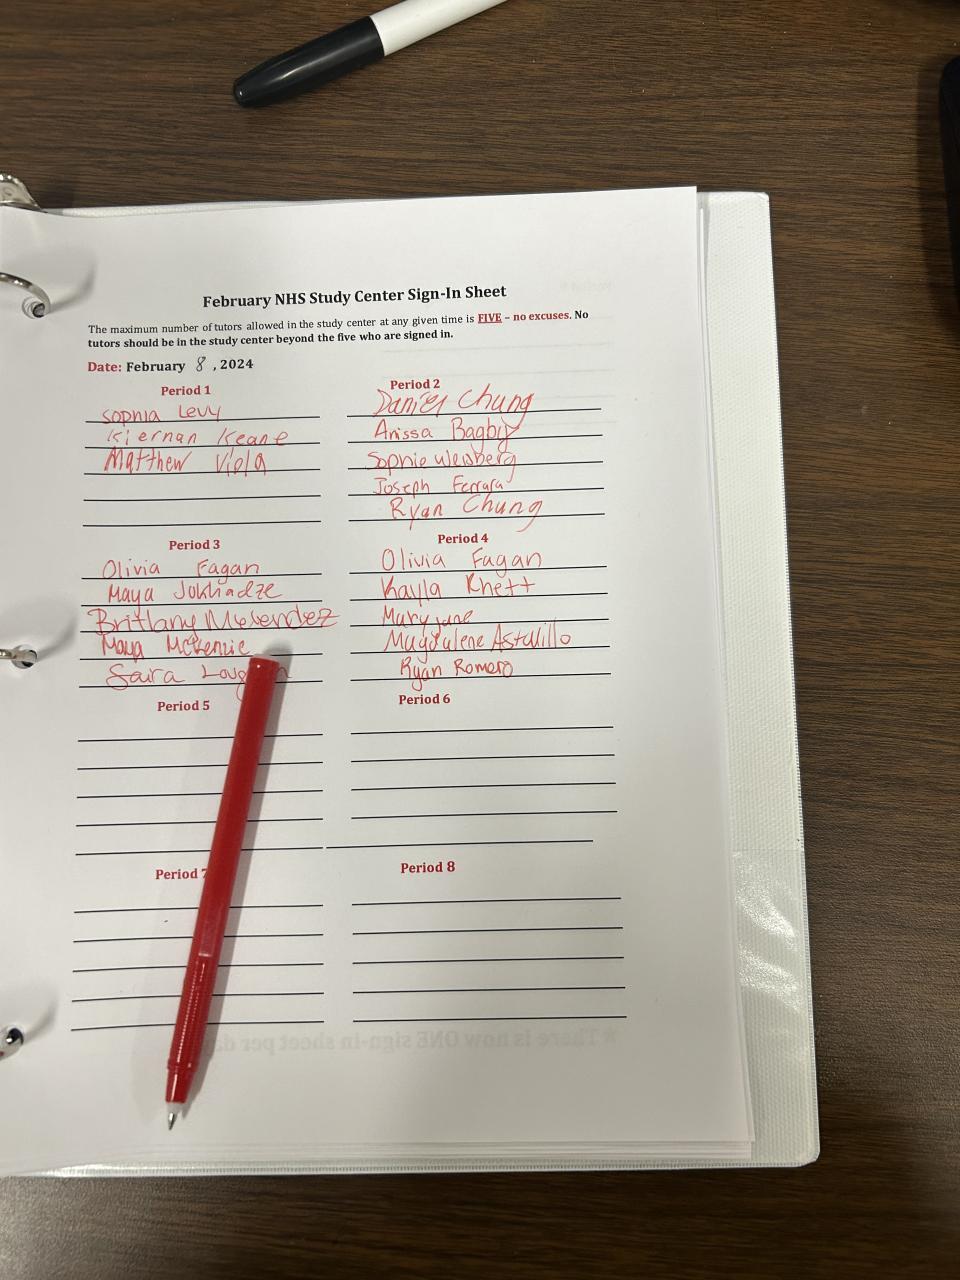 February NHS Study Center Sign-In Sheet
The maximum number of tutors allowed in the study center at any given time is FIVE – no excuses. No
tutors should be in the study center beyond the five who are signed in.
Date: February 8, 2024
Period 1
Sophia Levy
Kiernan Keane
Matthew Viola
Period 2
Daniel Chung
Arissa Bagby
Sophie Weisberg
Joseph Ferrara
Ryan Chung
Period 3
Olivia Fagan
Maya Jokhadze
Brittany Melendez
Maya McKenzie
Saira
Period 4
Olivia Fagan
Kayla Rhett
Mary Jane
Magdalene Astudillo
Ryan Romero
Period 5
Period 6
Period 7
Period 8
* There is now ONE sign-in sheet per day